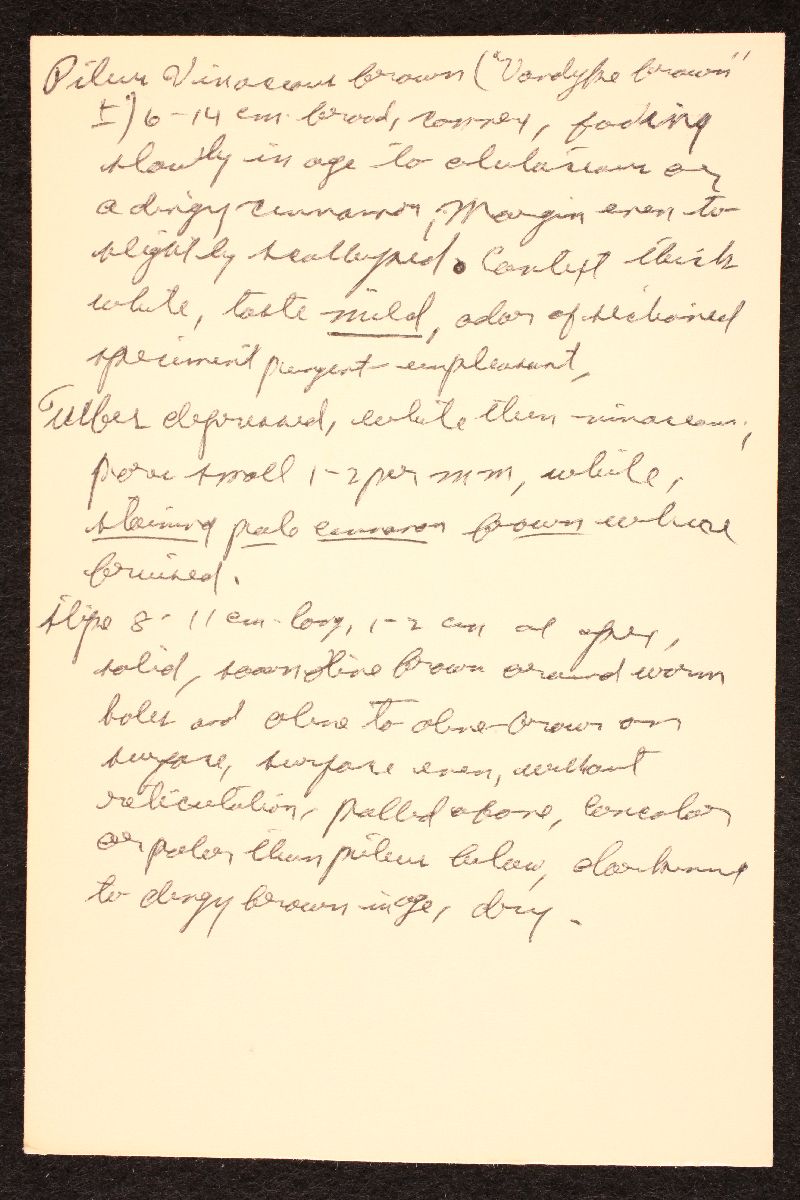 Pileus Vinaceous brown ("Vandyke brown"
±) 6-14 cm broad, convex, fading
slowly in age to alutaceous or
a dingy cinnamon, Margin even to
slightly scalloped. Context thick
white, taste mild, odor of sectioned
specimens pungent unpleasant,
Tubes depressed, white then vinaceous,
pores small 1-2 per mm, white,
staining pale cinnamon brown where
bruised.
Stipe 8-11 cm long, 1-2 cm at apex,
solid, olive brown around worm
holes and olive to olive-brown on
surface, surface even, without
reticulation, pallid above, concolor
or paler than pileus below, darkening
to dingy brown in age, dry.